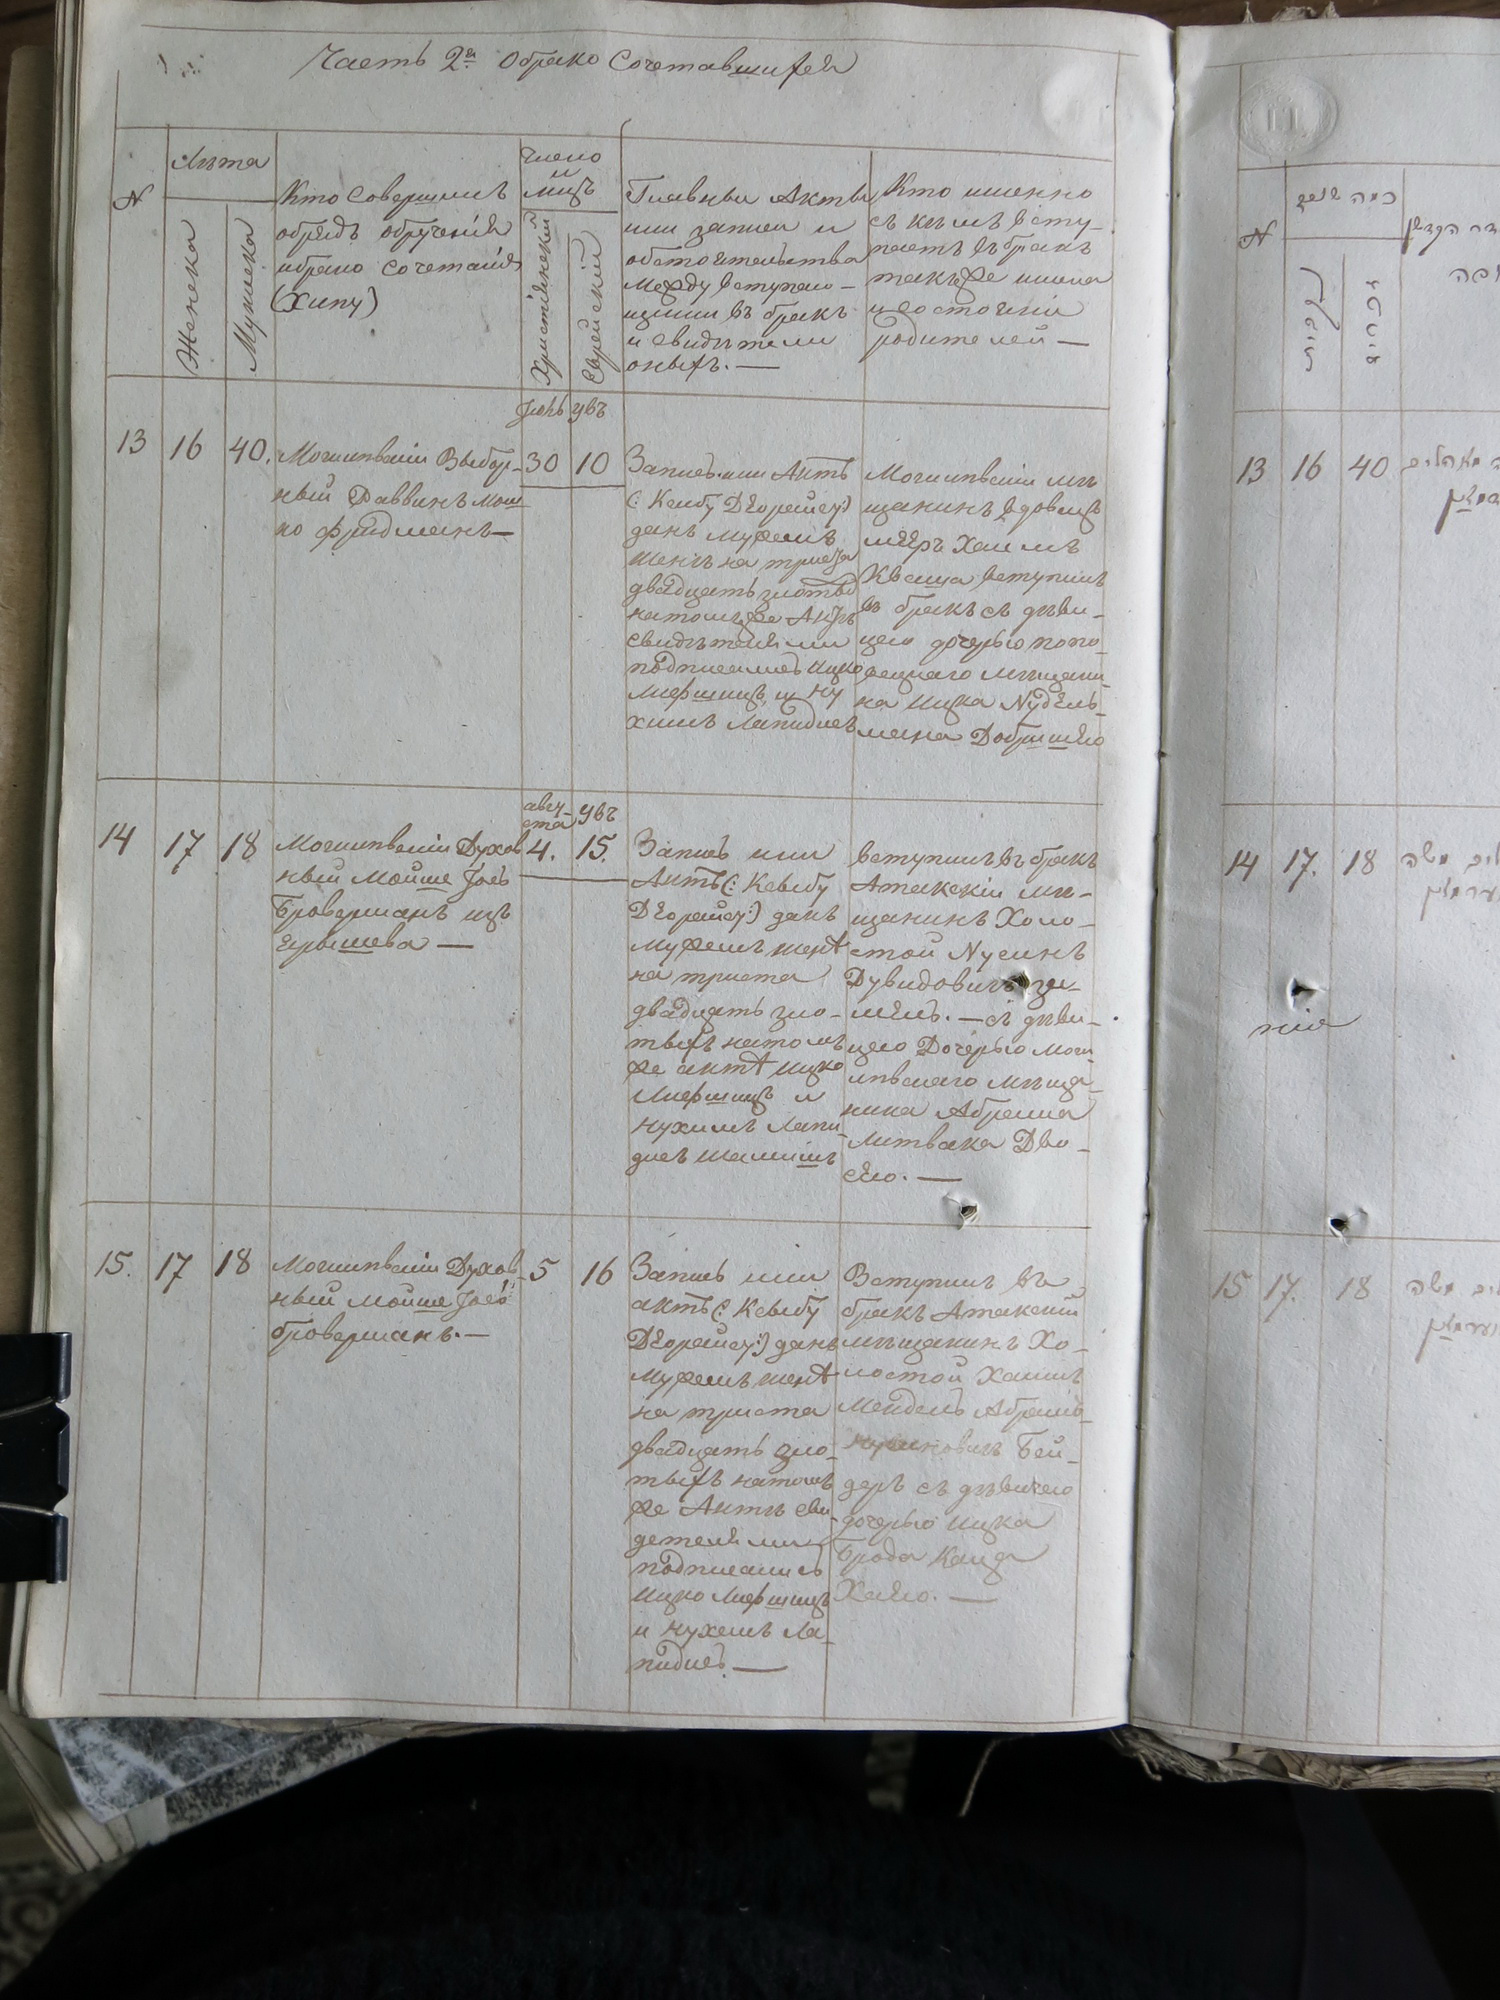 Часть 2я О брако Сочетавшихся
№
Лѣта
Женска
Мужска
Кто Совершилъ
обрядъ обрученія
и брако сочетанія
(Хипу)
Число
и
мцъ
Христіянскій
Еврейскій
Главныи Акты
или записи и
обстоятельства
Между вступаю-
щими въ бракъ
и свидѣтели
оныхъ. —
Кто именно
съ кѣмъ всту-
паетъ въ бракъ
такъже имена
и состоянія
родителей —
Іюль увъ
13 16 40. 30 10
Могилевскій Выбор-
ный Раввинъ Мош
ко Фридманъ —
Запись или Актъ
(: Ксибу Дѣорайсу:)
данъ мужемъ
женѣ на триста
двадцать злотыхъ
на томъ же Актѣ
свидѣтелями
подписались Ицко
Лифшицъ и Ну
химъ Лапидисъ
Могилевскій мѣ
щанинъ вдовецъ
Меѣръ Хаимъ
Кваша вступилъ
въ бракъ съ дѣви-
цею дочерью
мѣщани-
на Ицка Нудѣль-
мана Добришѣю
авгу-
ста увъ
14 17 18 4. 15.
Могилевскій Духов
ный Мойше Іось
Броверманъ изъ
Ярышева —
Запись или
Актъ (: Ксыбу
Дѣорайсу:) данъ
мужемъ женѣ
на триста
двадцать зло-
тыхъ на томъ
же актѣ Ицко
Лифшицъ и
Нухимъ Лапи-
дисъ Шамишъ
вступилъ въ бракъ
Атакскій мѣ-
щанинъ Холо-
стой Нусинъ
Дувидовичъ
— съ дѣви-
цею Дочерью Моги-
левскаго мѣща-
нина Абрама
Литвака Дво-
сѣю. —
15. 17 18 5 16
Могилевскій Духов-
ный Мойше Іось
Броверманъ. —
Запись или
актъ (: Ксыбу
Дѣорайсу:) данъ
Мужемъ женѣ
на триста
двадцать зло-
тыхъ на томъ
же Актѣ сви-
детелями
подписались
Ицко Лифшицъ
и Нухемъ Ла-
пидисъ. —
Вступилъ въ
бракъ Атакскій
мѣщанинъ Хо-
лостой Хаимъ
Мендель Абрамъ
Бей-
деръ съ дѣвицею
дочерью Ицка
Брода
Хаѣю. —
№
כמה שנים
נקבית
13 16 40
14 17. 18
нія
15 17. 18